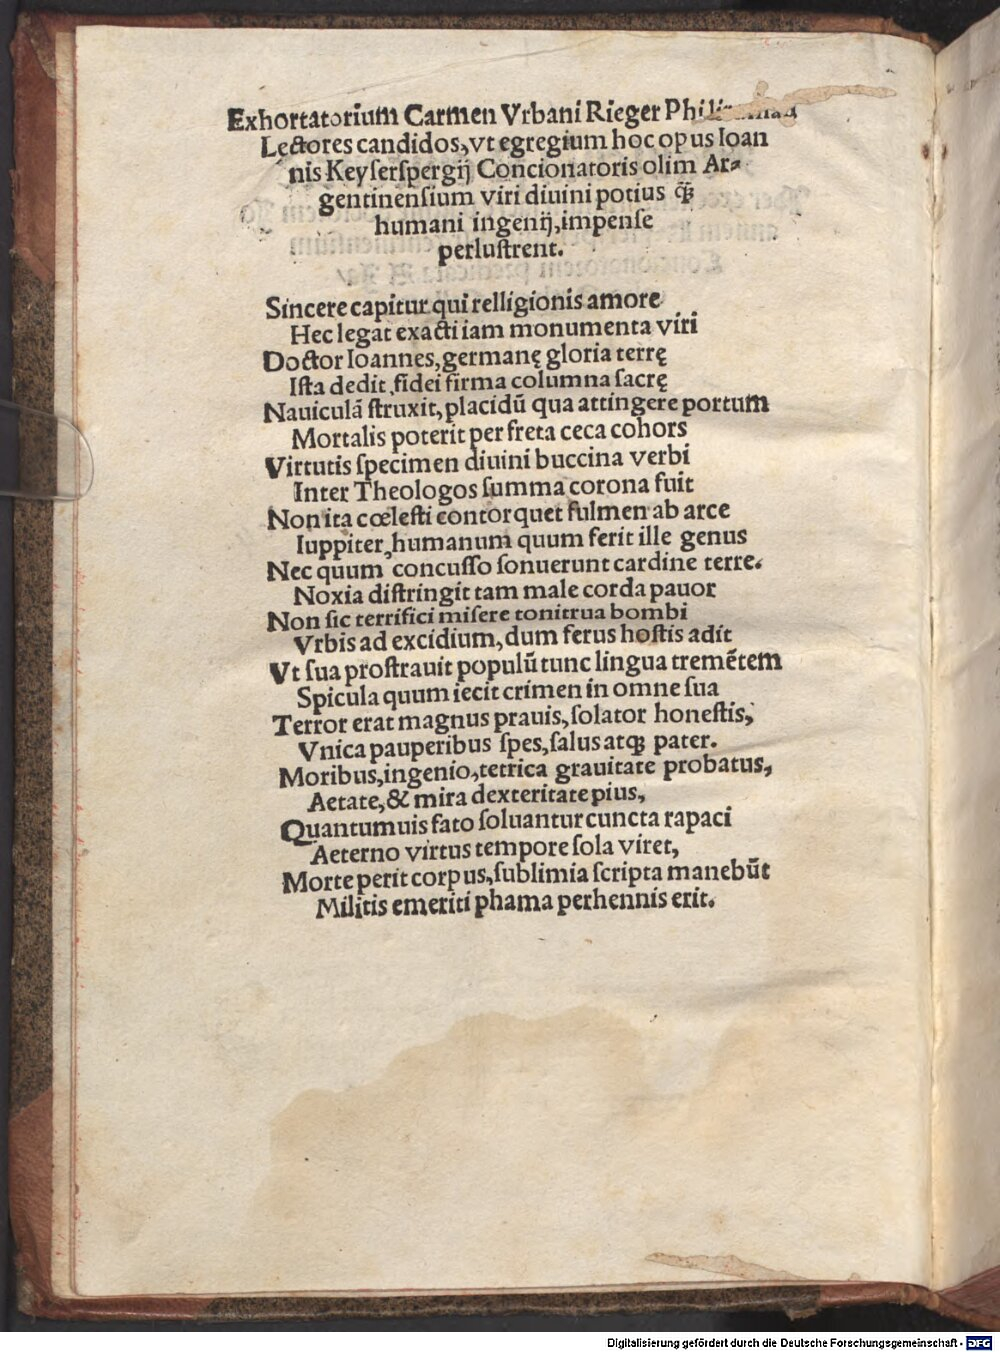 Exhortatorium Carmen Vrbani Rieger
Lectores candidos,vt egregium hoc opus Ioan
nis Keyſerſpergij Concionatoris olim Ar⸗
gentinenſium viri diuini potius ꝙ̃
humani ingenij,impenſe
perluſtrent.
Sincere capitur qui relligionis amore
Hec legat exacti iam monumenta viri
Doctor Ioannes,germanę gloria terrę
Iſta dedit,fidei firma columna ſacrę
Nauiculã ſtruxit,placidũ qua attingere portum
Mortalis poterit per freta ceca cohors
Virtutis ſpecimen diuini buccina verbi
Inter Theologos ſumma corona fuit
Non ita cœleſti contorquet fulmen ab arce
Iuppiter,humanum quum ferit ille genus
Nec quum concuſſo ſonuerunt cardine terre.
Noxia diſtringit tam male corda pauor
Non ſic terrifici miſere tonitrua bombi
Vrbis ad excidium,dum ferus hoſtis adit
Vt ſua proſtrauit populũ tunc lingua tremẽtem
Spicula quum iecit crimen in omne ſua
Terror erat magnus prauis,ſolator honeſtis,
Vnica pauperibus ſpes,ſalus atqꝫ pater.
Moribus,ingenio,tetrica grauitate probatus,
Aetate,& mira dexteritate pius,
Quantumuis fato ſoluantur cuncta rapaci
Aeterno virtus tempore ſola viret,
Morte perit corpus,ſublimia ſcripta manebũt
Militis emeriti phama perhennis erit.
Digitalisierung gefördert durch die Deutsche Forschungsgemeinschaft - DFG